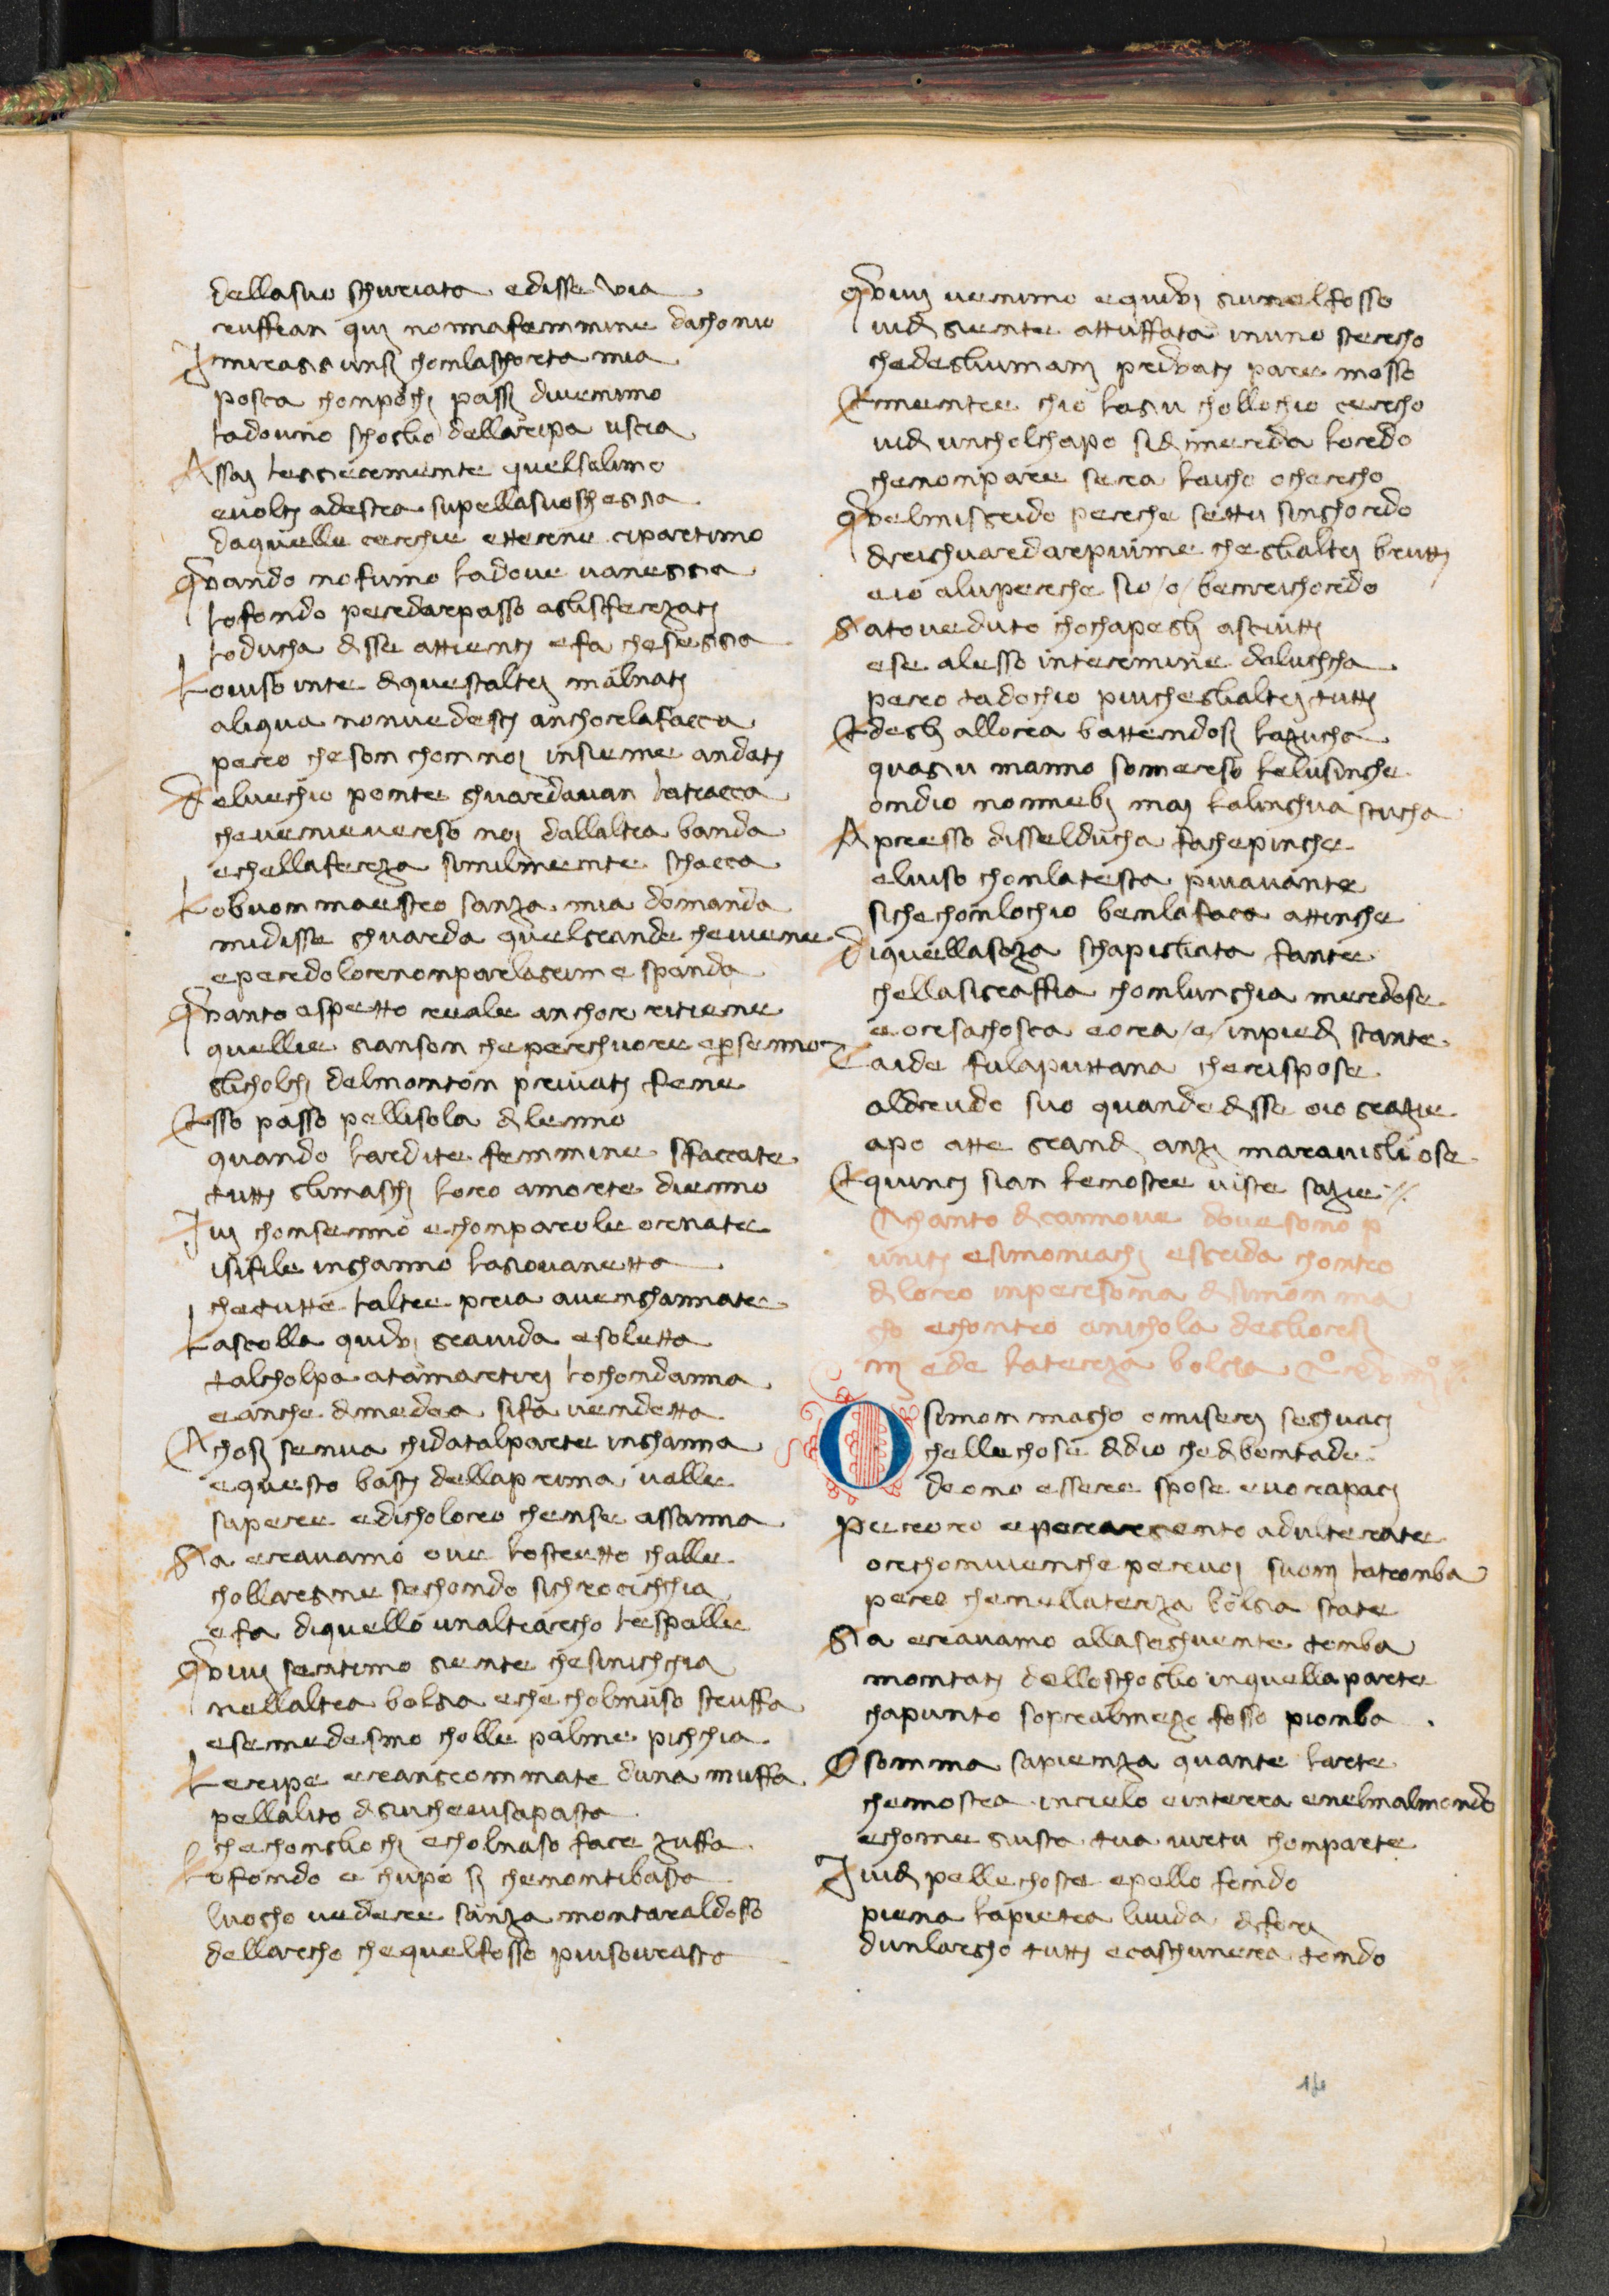 dellasuo schuriata edisse via
ruffian quj nonnafemmine dachonio
Jmiragiunsj chonlaschorta mia
poscia chonpochj passj divenimo
ladovuno schoglio dellaripa uscia
Assaj leggieremente quelsalimo
evoltj adestra supellasuoscheggia
daquelle cerchie etterne cipartimo
Quando nofumo ladove vaneggia
sofondo perdarpasso aglisferzatj
loducha disse attientj efa cheseggia
Loviso inte diquestaltrj malnatj
aliqua nonvedestj anchorlafaccia
pero cheson chonnoj insieme andatj
Delvechio ponte ghuardavan latraccia
chevenieverso noj dallaltra banda
echellaferza similmente schaccia
Lobuon maestro sanza mia domanda
midisse ghuarda quelgrande cheviene
eperdolorenonparlagrime spanda
Quanto aspetto reale anchor ritiene
quellie gianson cheperchuore epersenno
glicholchj delmonton privatj fene
Esso passo pellisola dilenno
quando lardite femmine spiatate
tuttj glimaschj loro amorte dienno
Jvj chonsenno echonparole ornate
isifile inghanno lagiovanetta
chetutte laltre pria avenghannate
Lasciolla quivj gravida esoletta
talcholpa atalmartirj lochondanna
eanche dimedea sifa vendetta
Chosj senva chidatalparte inghanna
equesto bastj dellaprima valle
sapere edicholoro chense assanna
Gia eravamo ove lostretto challe
chollargine sechondo sichrocicchia
efa diquello unaltrarcho lespalle
Quivj sentimo giente chesinicchia
nellaltra bolgia eche cholmuso stuffa
esemedesmo cholle palme picchia
Leripe erangrommate duna muffa
pellalito digiucheviсapasta
chechongliochj echolnaso face zuffa
Lofondo e chupo sj chenontibasta
luogho vedere sanza montaraldosso
dellarcho chequelfosso piusovrasta
Quivj venimo equivj giunelfosso
vidj giente attuffata inuno stercho
chedeglhumanj privatj parea mosso
Ementre chio lagiu chollochio cercho
vidj uncholchapo sidimerda lordo
chenonparea sera laicho ochercho
Quelmisgrido perche settu singhordo
diriguardarpiume cheglialtrj bruttj
eio aluiperche sio /o/ benrichordo
Gia toveduto chochapeglj asciuttj
ese alesso interminie daluchcha
pero tadochio piucheglialtrj tuttj
Edeglj allora battendosj lazucha
quagiu manno somerso lelusinghe
ondio nonnebj maj lalinghua stucha
Apresso disselducha fachepinghe
elviso chonlatesta piuavante
sichechonlochio benlafaca attinghe
Diquellasoza schapigliata fante
chellasigraffia chonlunghia merdose
e orsachoscia eora /e/ inpiedj stante
Taide fulaputtana cherispose
aldrudo suo quandodisse oio grazie
apo atte grandj anzj maravigliose
Equincj sian lenostre viste sazie
Chanto dicannove dovesono p
unitj esimoniachj esgrida chontro
diloro inpersona disimon ma
gho echontro anichola degliorsj
nj ede laterza bolgia
O simon magho omiserj seghuacj
chellechose didio chedibontade
deono essere spose evorapacj
Peroro eperargento adulterate
orchonvienche pervoj suonj latronba
pero chenellaterza bolgia state
Gia eravamo allaseghuente tomba
montatj delloschoglio inquellaparte
chapunto sopralmezo fosso pionba
O somma sapienza quante larte
chemostra incielo einterra enelmalmondo
echome giusta tua virtu chomparte
Jvidj pellechoste epello fondo
piena lapietra livida diforj
dunlargho tuttj eciaschunera tondo
14